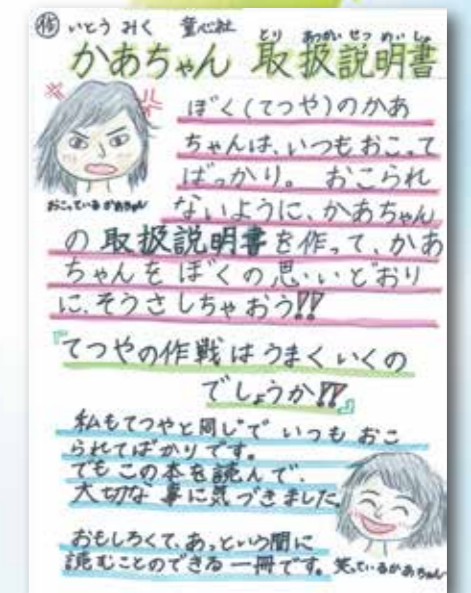 作 いとう みく 童心社
とり あつかい せつ めい しょ
かあちゃん 取扱説明書
ぼく(てつや)のかあ
ちゃんは、いつもおこって
ばっかり。 おこられ
ないように、かあちゃん
の取扱説明書を作って、かあ
ちゃんをぼくの思いどおり
に、そうさしちゃおう!!
おこっているかあちゃん
『てつやの作戦はうまくいくの
でしょうか!!』
私もてつやと同じで いつも おこ
られてばかりです。
でもこの本を読んで、
大切な事に気づきました。
おもしろくて、あっという間に
読むことのできる一冊です。
笑っているかあちゃん